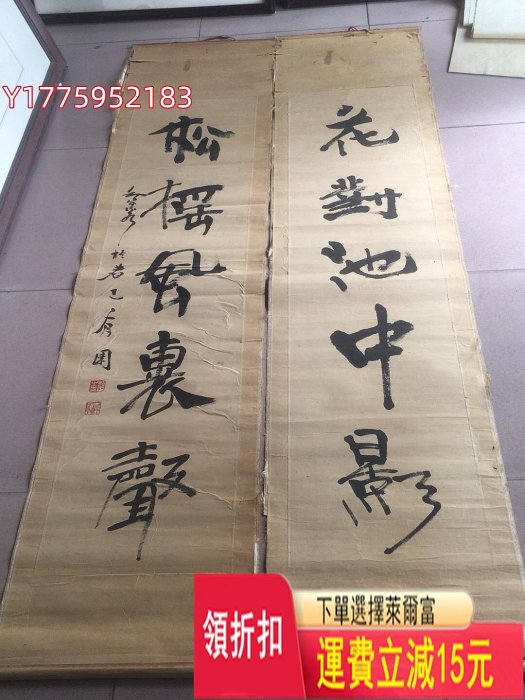 Y1775952183
花對池中影
松摇風裏聲
領折扣
下單選擇萊爾富
運費立減15元